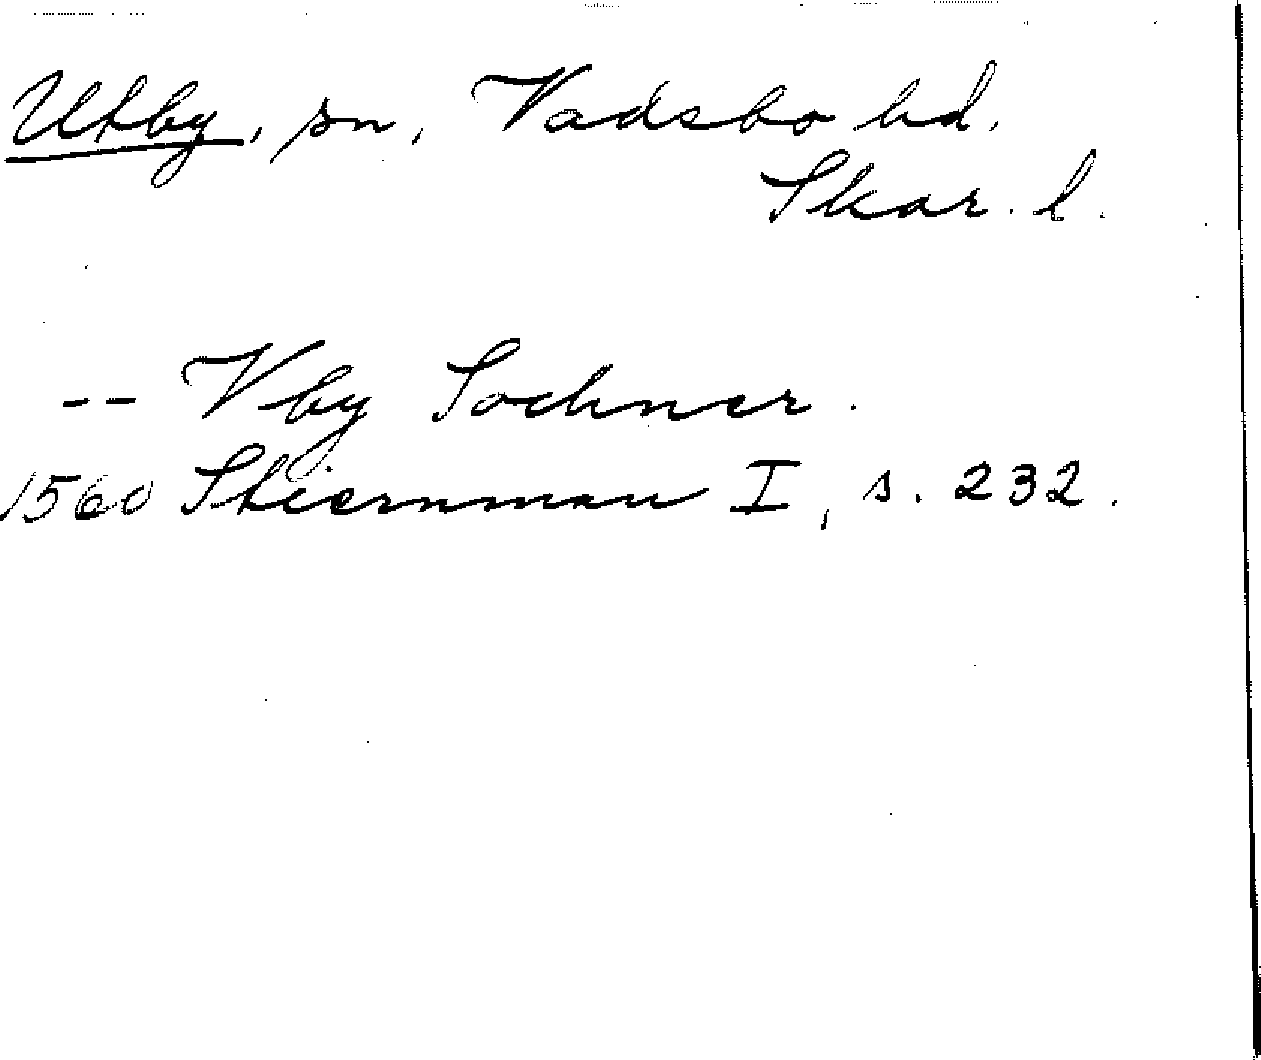 Utby, sn, Vadsbo hd.
Skar. l.
-- Vby Sochner.
1560 Stiernman I, s. 232.